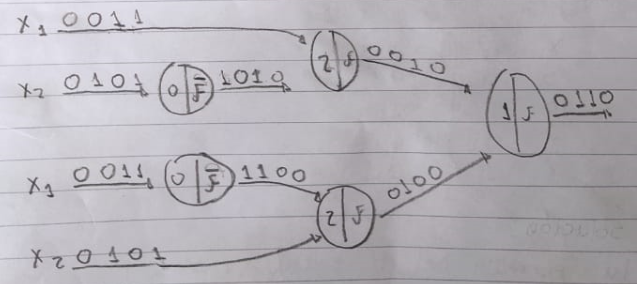 x₁ 0 0 1 1
2 f 0 0 1 0
x₂ 0 1 0 1 0 f̄ 1 0 1 0
1 f 0 1 1 0
x₁ 0 0 1 1 0 f̄ 1 1 0 0
2 f 0 1 0 0
x₂ 0 1 0 1